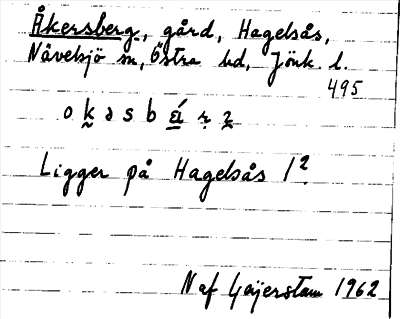 Åkersberg, gård, Hagelsås,
Nävelsjö sn, Östra hd, Jönk. l.
495
Ligger på Hagelsås 1².
N af Gajerstam 1962